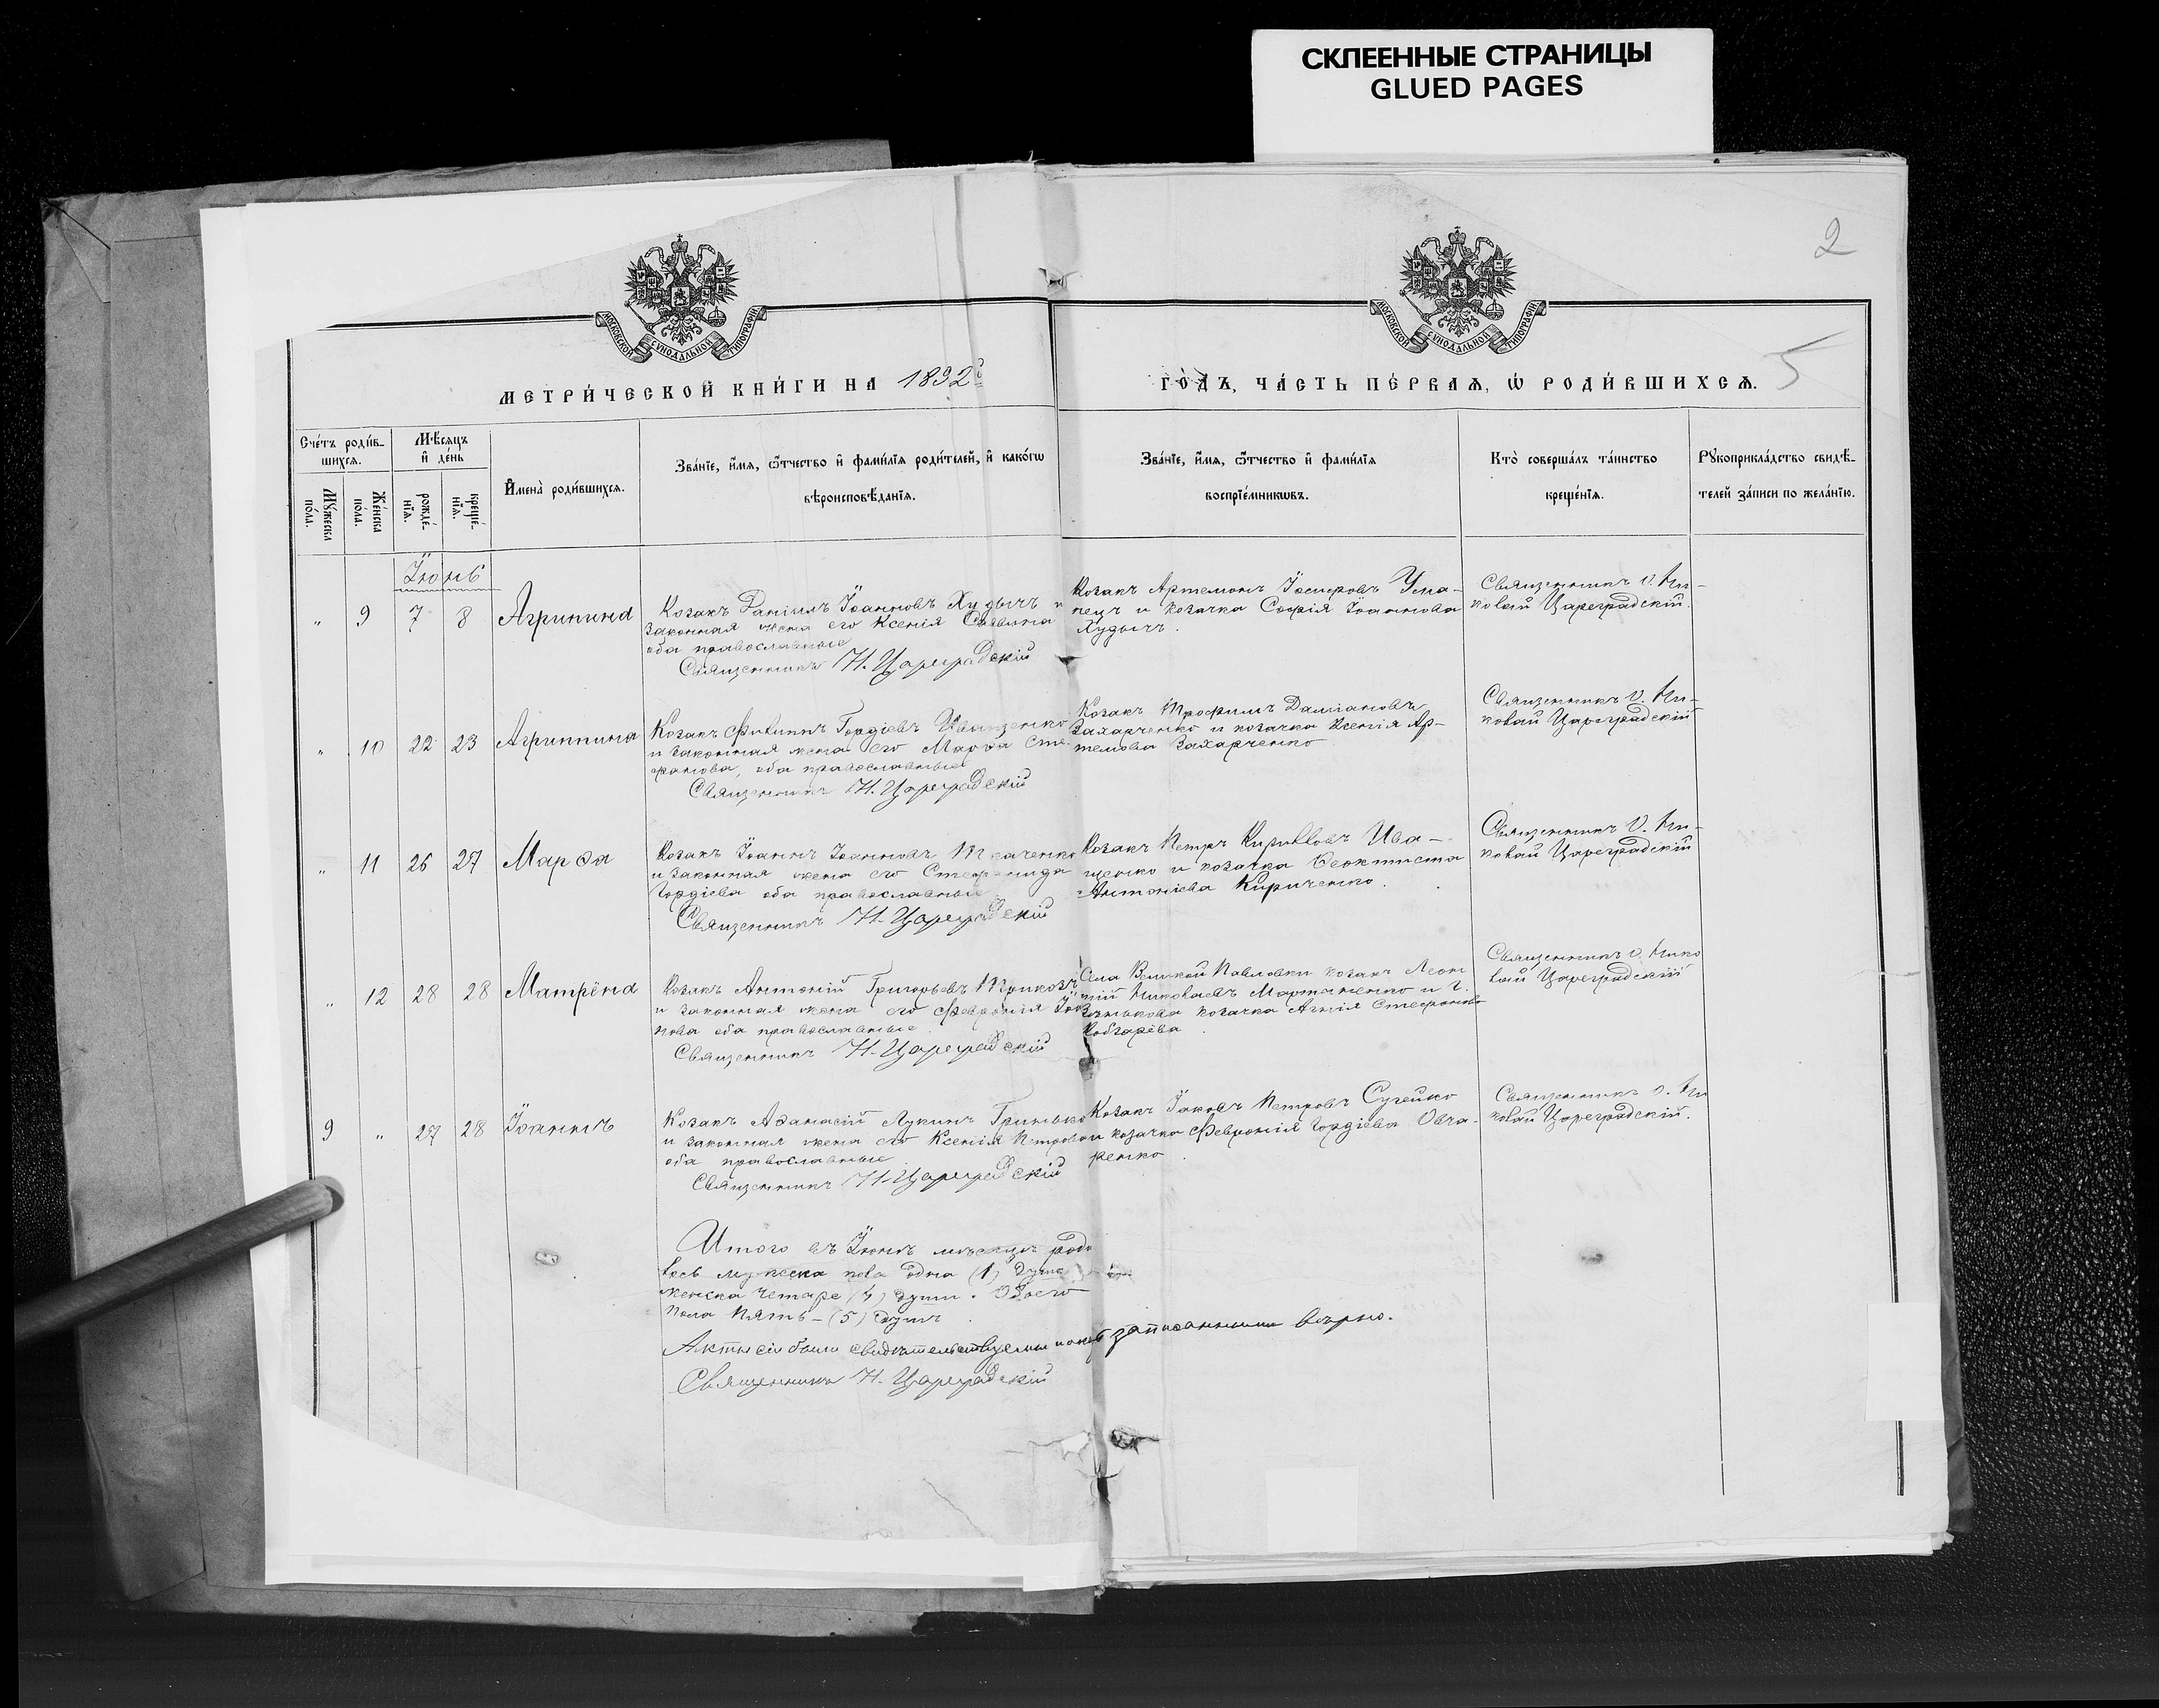 СКЛЕЕННЫЕ СТРАНИЦЫ
GLUED PAGES
2
МОСКОВСКОЙ СУНОДАЛЬНОЙ ТИПОГРАФІИ
МОСКОВСКОЙ СУНОДАЛЬНОЙ ТИПОГРАФІИ
5
МЕТРИ́ЧЕСКОЙ КНИ́ГИ НА 1892
ГО́ДЪ, ЧА́СТЬ ПЕ́РВАЯ, Ѡ РОДИ́ВШИХСЯ.
Сче́тъ роди́в-
шихся.
Мѣ́сяцъ
и̂ де́нь
Му́жеска
по́ла.
Же́нска
по́ла.
рожде́-
нїя.
креще́-
нїя.
И̂мена̀ роди́вшихся.
Зва́нїе, и̂́мя, ѻ҆́тчество и̂ фами́лїя роди́телей, и̂ како́гѡ
вѣроисповѣ́данїя.
Зва́нїе, и̂́мя, ѻ҆́тчество и̂ фами́лїя
воспрїе́мникѡвъ.
Кто̀ соверша́лъ та́инство
креще́нїя.
Рꙋкоприкла́дство свидѣ́-
телей за́писи по жела́нїю.
Іюнь
„ 9 7 8 Агрипина
Козакъ Даніилъ Іоанновъ Худычъ и
законная жена его Ксенія Саввина
оба православные
Священникъ Н. Цареградскій
Козакъ Артемонъ Іосифовъ Ума-
нецъ и козачка Софія Іоаннова
Худычъ.
Священникъ о. Ни-
колай Цареградскій.
„ 10 22 23 Агриппина
Козакъ Филиппъ Гордіевъ Иващенко
и законная жена его Марѳа Сте-
фанова, оба православные
Священникъ Н. Цареградскій
Козакъ Трофимъ Даміановъ
Захарченко и козачка Ксенія Ар-
темова Захарченко
Священникъ о. Ни-
колай Цареградскій
„ 11 26 27 Марѳа
Козакъ Іоаннъ Іоанновъ Ткаченко
и законная жена его Стефанида
Гордіева оба православные
Священникъ Н. Цареградскій
Козакъ Петръ Кирилловъ Ива-
щенко и козачка Ѳеоктиста
Антоніева Кириченко.
Священникъ о. Ни-
колай Цареградскій
„ 12 28 28 Матрёна
Козакъ Антоній Григорьевъ
и законная жена его Февронія
оба православные.
Священникъ Н. Цареградскій
Села Великой Павловки козакъ Леон
тій Николаевъ Мартыненко и г.
Зенькова козачка Агнія Стефанова
Кобзарева.
Священникъ о. Нико
лай Цареградскій
9 „ 27 28 Іоаннъ
Козакъ Аѳанасій Лукинъ Гринько
и законная жена его Ксенія Петрова
оба православные
Священникъ Н. Цареградскій
Козакъ Іаковъ Петровъ Сугейко
и козачка Февронія Гордіева Овча-
ренко
Священникъ о. Ни
колай Цареградскій.
Итого въ Іюнѣ мѣсяцѣ роди
лось мужеска пола одна (1) душа
женска четыре (4) души. Обоего
пола пять – (5) душъ
Акты сіи были свидѣтельствуемы и записанными вѣрно.
Священникъ Н. Цареградскій